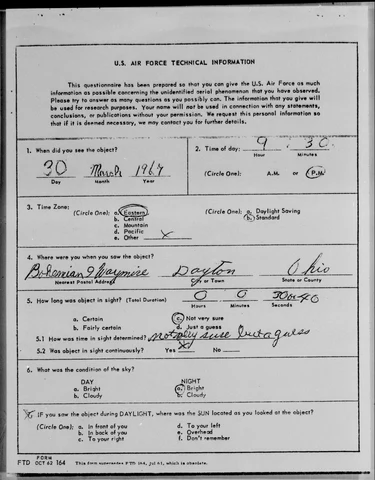 U.S. AIR FORCE TECHNICAL INFORMATION
This questionnaire has been prepared so that you can give the U.S. Air Force as much
information as possible concerning the unidentified aerial phenomenon that you have observed.
Please try to answer as many questions as you possibly can. The information that you give will
be used for research purposes. Your name will not be used in connection with any statements,
conclusions, or publications without your permission. We request this personal information so
that if it is deemed necessary, we may contact you for further details.
1. When did you see the object?
30 March 1967
Day Month Year
2. Time of day: 9 30
Hour Minutes
(Circle One): A.M. or P.M.
3. Time Zone:
(Circle One): a. Eastern
b. Central
c. Mountain
d. Pacific
e. Other x
(Circle One): a. Daylight Saving
b. Standard
4. Where were you when you saw the object?
Bohemian & Waymire Dayton Ohio
Nearest Postal Address City or Town State or County
5. How long was object in sight? (Total Duration) 0 0 30 or 40
Hours Minutes Seconds
a. Certain
b. Fairly certain
c. Not very sure
d. Just a guess
5.1 How was time in sight determined? not very sure but a guess
5.2 Was object in sight continuously? Yes X No
6. What was the condition of the sky?
DAY
a. Bright
b. Cloudy
NIGHT
a. Bright
b. Cloudy
7. IF you saw the object during DAYLIGHT, where was the SUN located as you looked at the object?
(Circle One): a. In front of you
b. In back of you
c. To your right
d. To your left
e. Overhead
f. Don't remember
FORM
FTD OCT 62 164 This form supersedes FTD 164, Jul 61, which is obsolete.